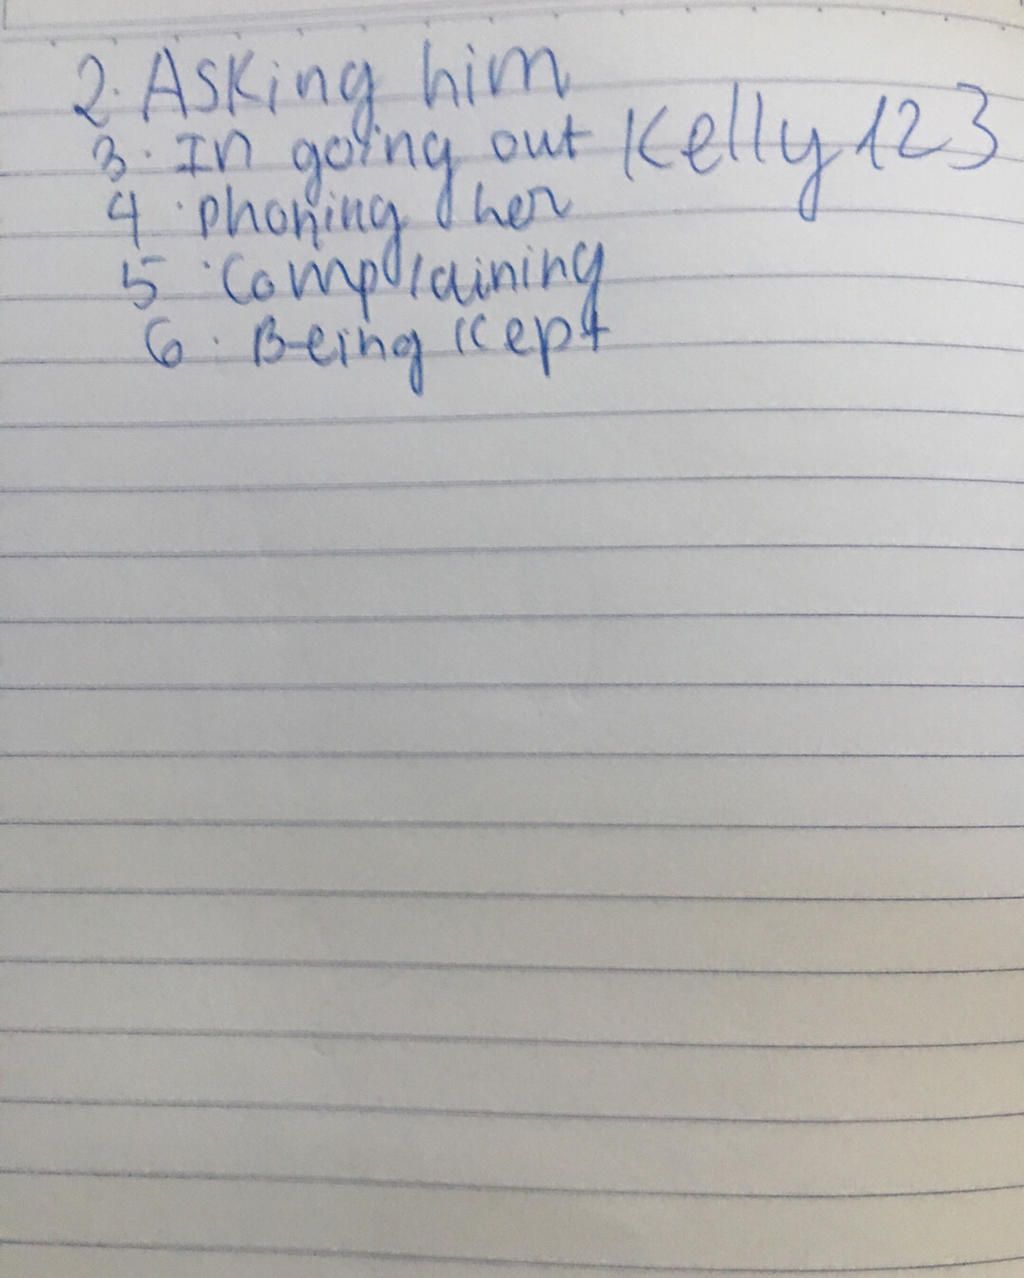 2. Asking him
3. In going out Kelly123
4. phoning her
5. Complaining
6. Being kept